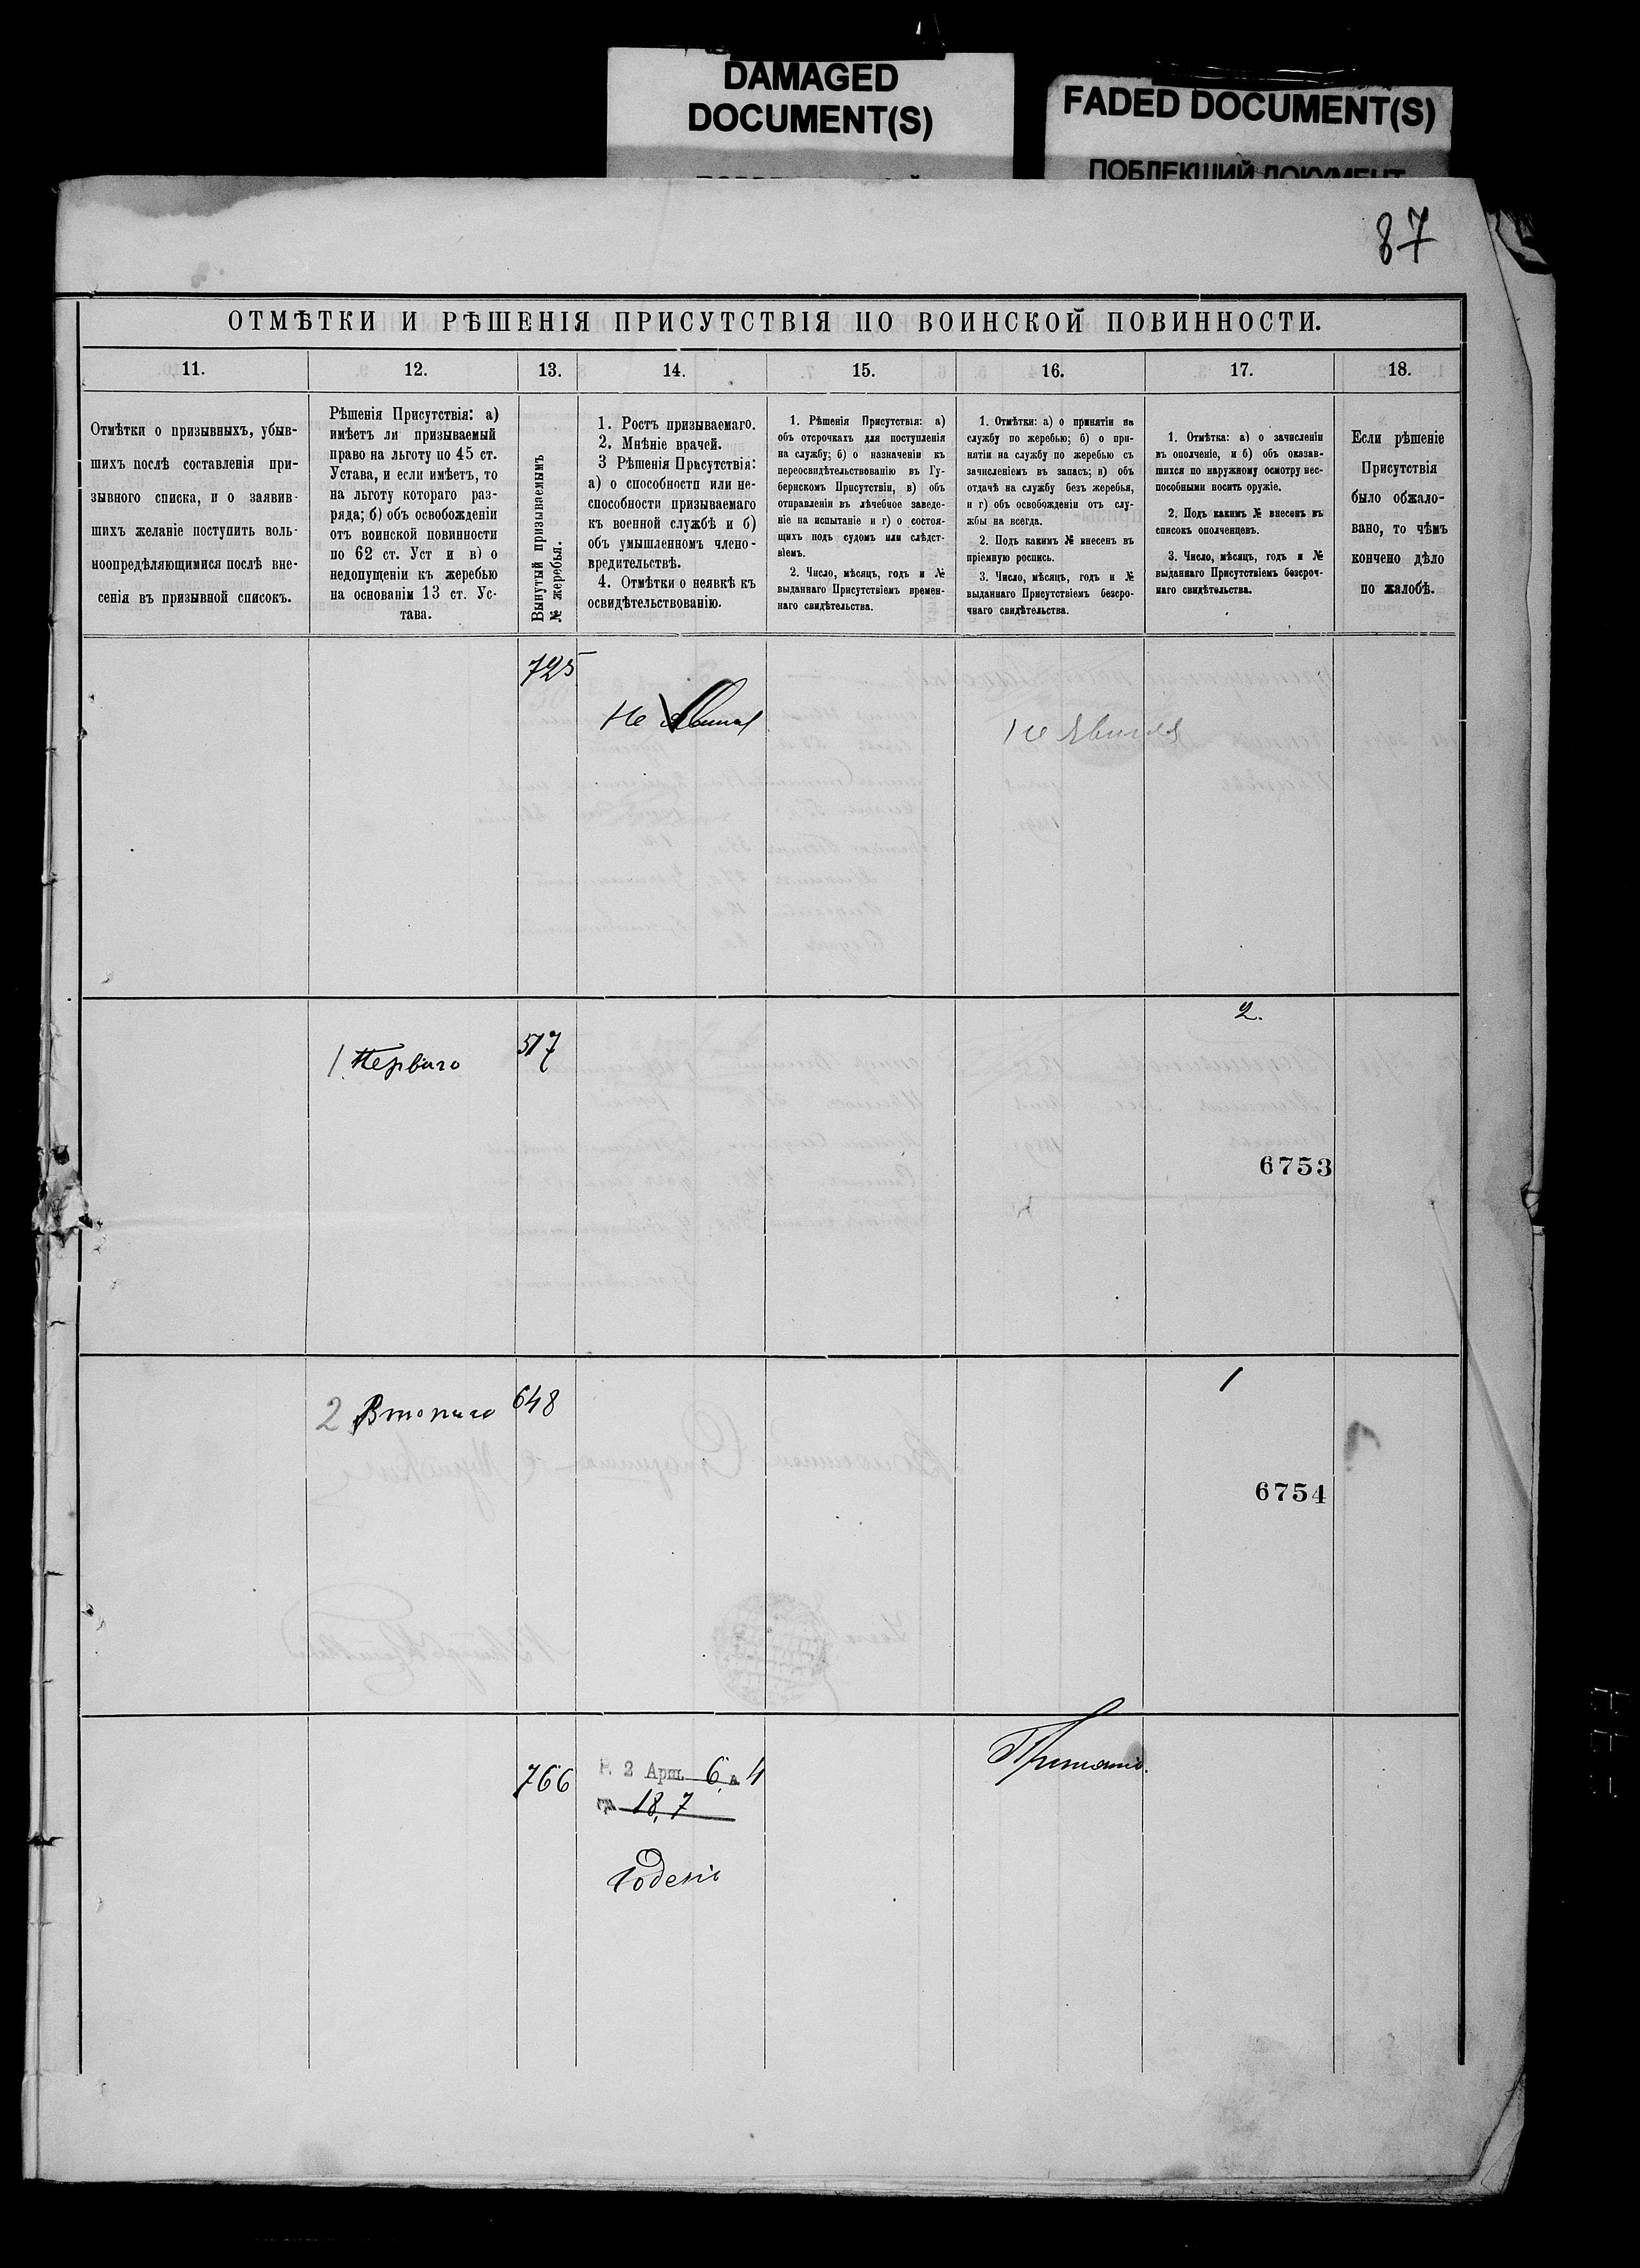 DAMAGED
DOCUMENT(S)
FADED DOCUMENT(S)
ПОБЛЕКШИЙ ДОКУМЕНТ
87
ОТМѢТКИ И РѢШЕНІЯ ПРИСУТСТВІЯ ПО ВОИНСКОЙ ПОВИННОСТИ.
11.
12.
13.
14.
15.
16.
17.
18.
Отмѣтки о призывныхъ, убыв-
шихъ послѣ составленія при-
зывного списка, и о заявив-
шихъ желаніе поступить воль-
ноопредѣляющимися послѣ вне-
сенія въ призывной списокъ.
Рѣшенія Присутствія: а)
имѣетъ ли призываемый
право на льготу по 45 ст.
Устава, и если имѣетъ, то
на льготу котораго раз-
ряда; б) объ освобожденіи
отъ воинской повинности
по 62 ст. Уст и в) о
недопущеніи къ жеребью
на основаніи 13 ст. Ус-
тава.
Вынутый призываемымъ
№ жеребья.
1. Ростъ призываемаго.
2. Мнѣніе врачей.
3 Рѣшенія Присутствія:
а) о способности или не-
способности призываемаго
къ военной службѣ и б)
объ умышленномъ члено-
вредительствѣ.
4. Отмѣтки о неявкѣ къ
освидѣтельствованію.
1. Рѣшенія Присутствія: а)
объ отсрочкахъ для поступленія
на службу; б) о назначеніи къ
переосвидѣтельствованію въ Гу-
бернскомъ Присутствіи, в) объ
отправленіи въ лѣчебное заведе-
ніе на испытаніе и г) о состоя-
щихъ подъ судомъ или слѣдст-
віемъ.
2. Число, мѣсяцъ, годъ и №
выданнаго Присутствіемъ времен-
наго свидѣтельства.
1. Отмѣтки: а) о принятіи на
службу по жеребью; б) о при-
нятіи на службу по жеребью съ
зачисленіемъ въ запасъ; в) объ
отдачѣ на службу безъ жеребья,
и г) объ освобожденіи отъ слу-
жбы на всегда.
2. Подъ какимъ № внесенъ въ
пріемную роспись.
3. Число, мѣсяцъ, годъ и №
выданнаго Присутствіемъ безсро-
чнаго свидѣтельства.
1. Отмѣтка: а) о зачисленіи
въ ополченіе, и б) объ оказав-
шихся по наружному осмотру нес-
пособными носить оружіе.
2. Подъ какимъ № внесенъ въ
списокъ ополченцевъ.
3. Число, мѣсяцъ, годъ и №
выданнаго Присутствіемъ безсроч-
наго свидѣтельства.
Если рѣшеніе
Присутствія
было обжало-
вано, то чѣмъ
кончено дѣло
по жалобѣ.
725
Не явился
Не явился
1. Перваго
517
2.
6753
2 Втораго
648
1
6754
766
Р. 2 Арш. 6 в 4
18,7
Годенъ
Принятъ.